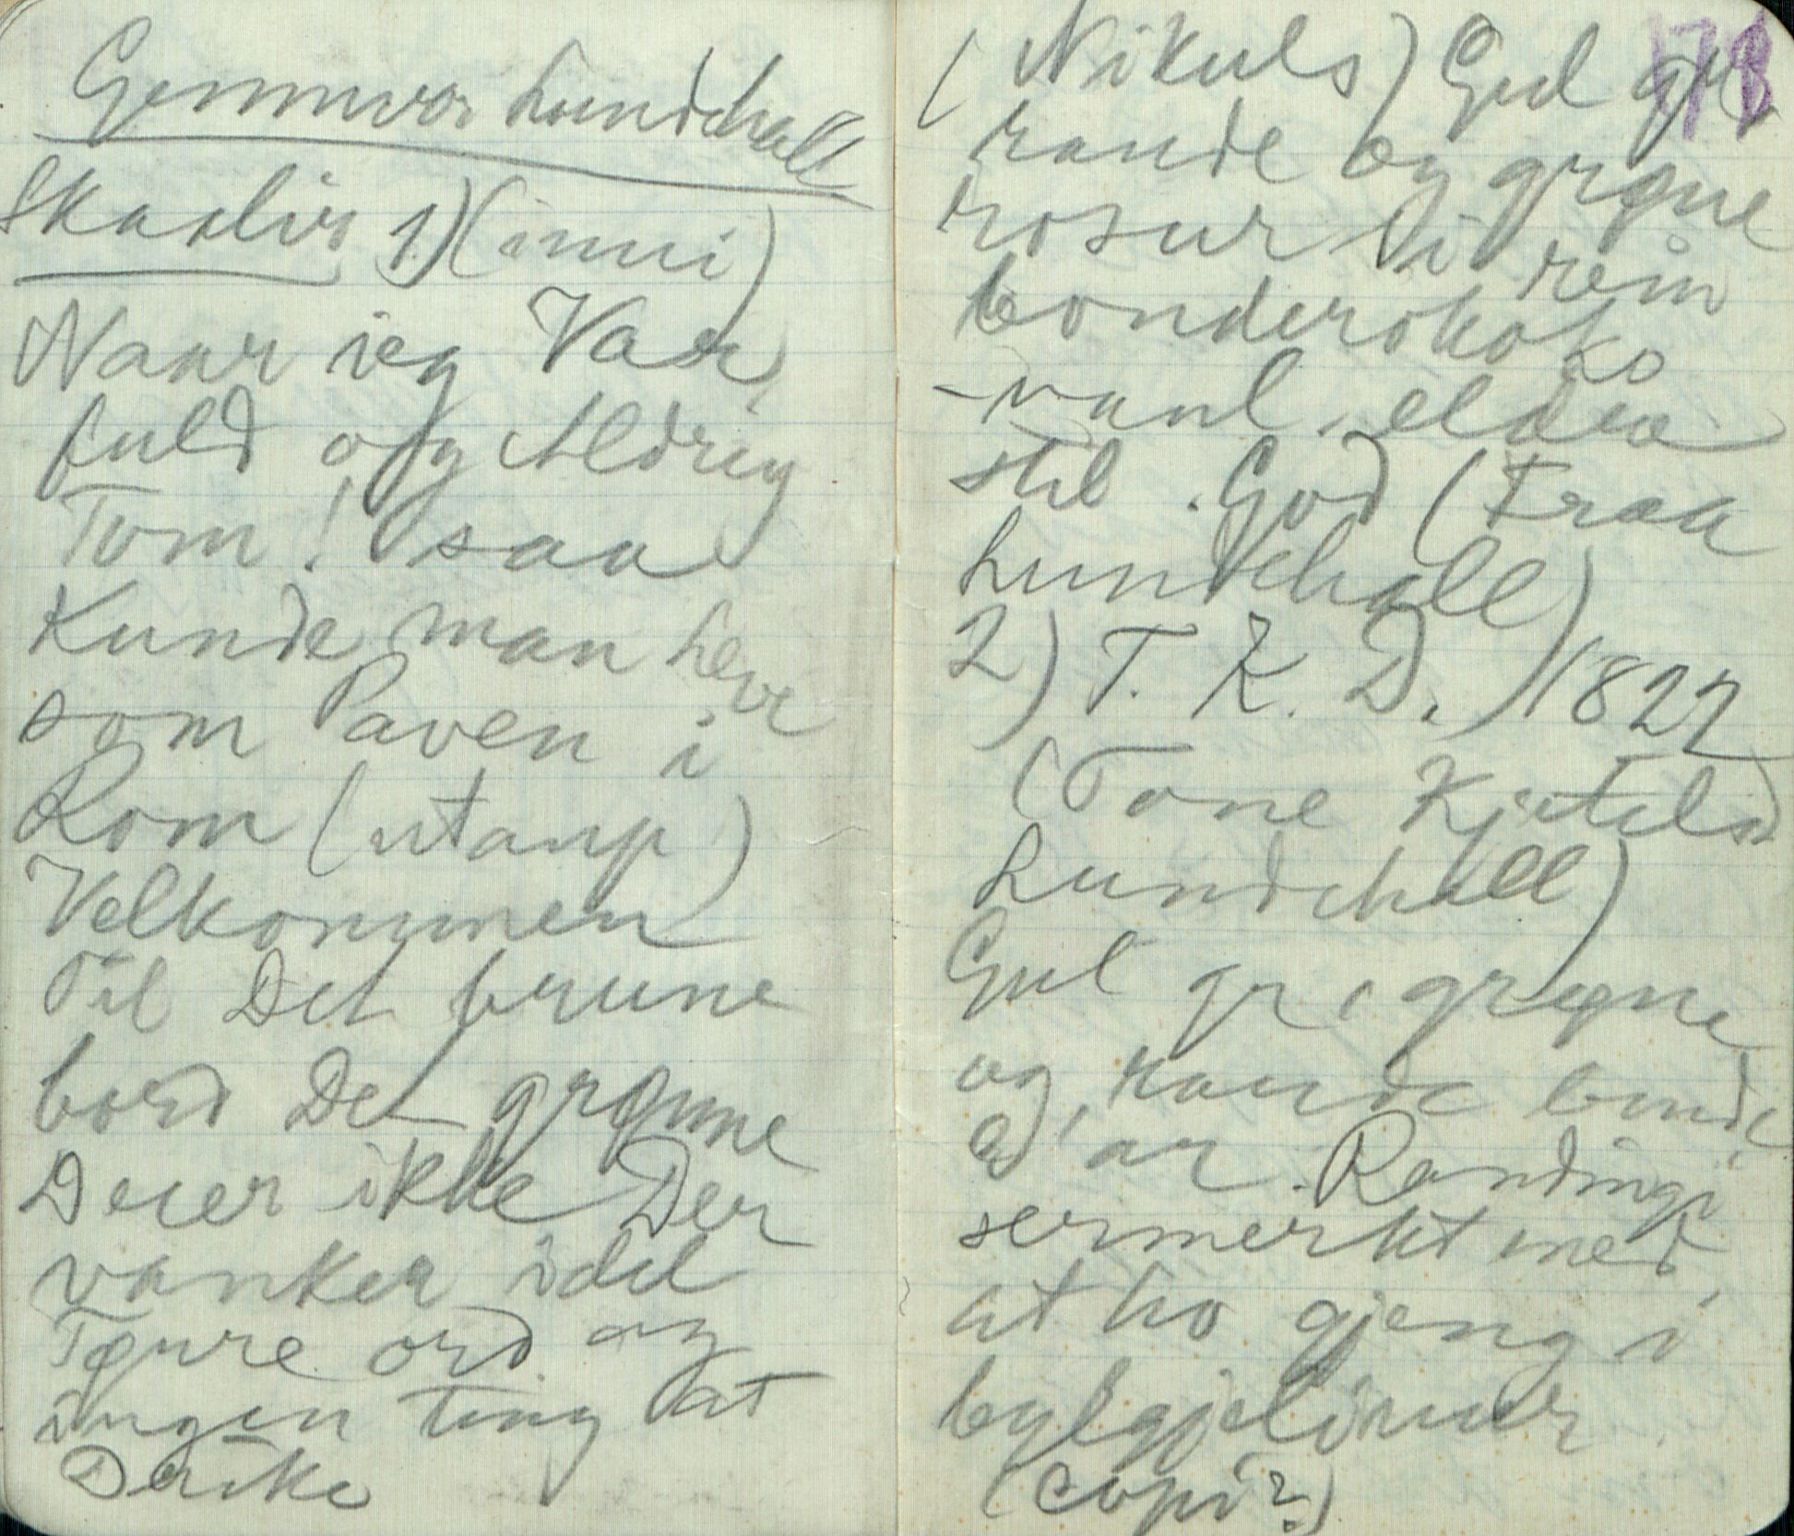 Gunnvor Lundehall
Skaalir 1) (inni)
Naar ieg Var
fuld og Aldrig
Tom! saa
Kunde man Leve
som Paven i
Rom (utanp)
Velkommen
Til Det brune
bord Det grønne
Deier ikke Der
vanker idel
Tøure ord og
ingen ting at
Derike
178
(Nikuls) Gul gr
raude og grøne
rosur i rein
bonderokoko
-vanl. eldra
stil. God (Fraa
Lundehall)
2) T. K. D. 1822
(Tone Kjetilsd
Lundehall)
Gul gr, grøne
og raude
ar. Randingi
sermerkt med
at ho gjeng i
bylgjelinur
(copi?)